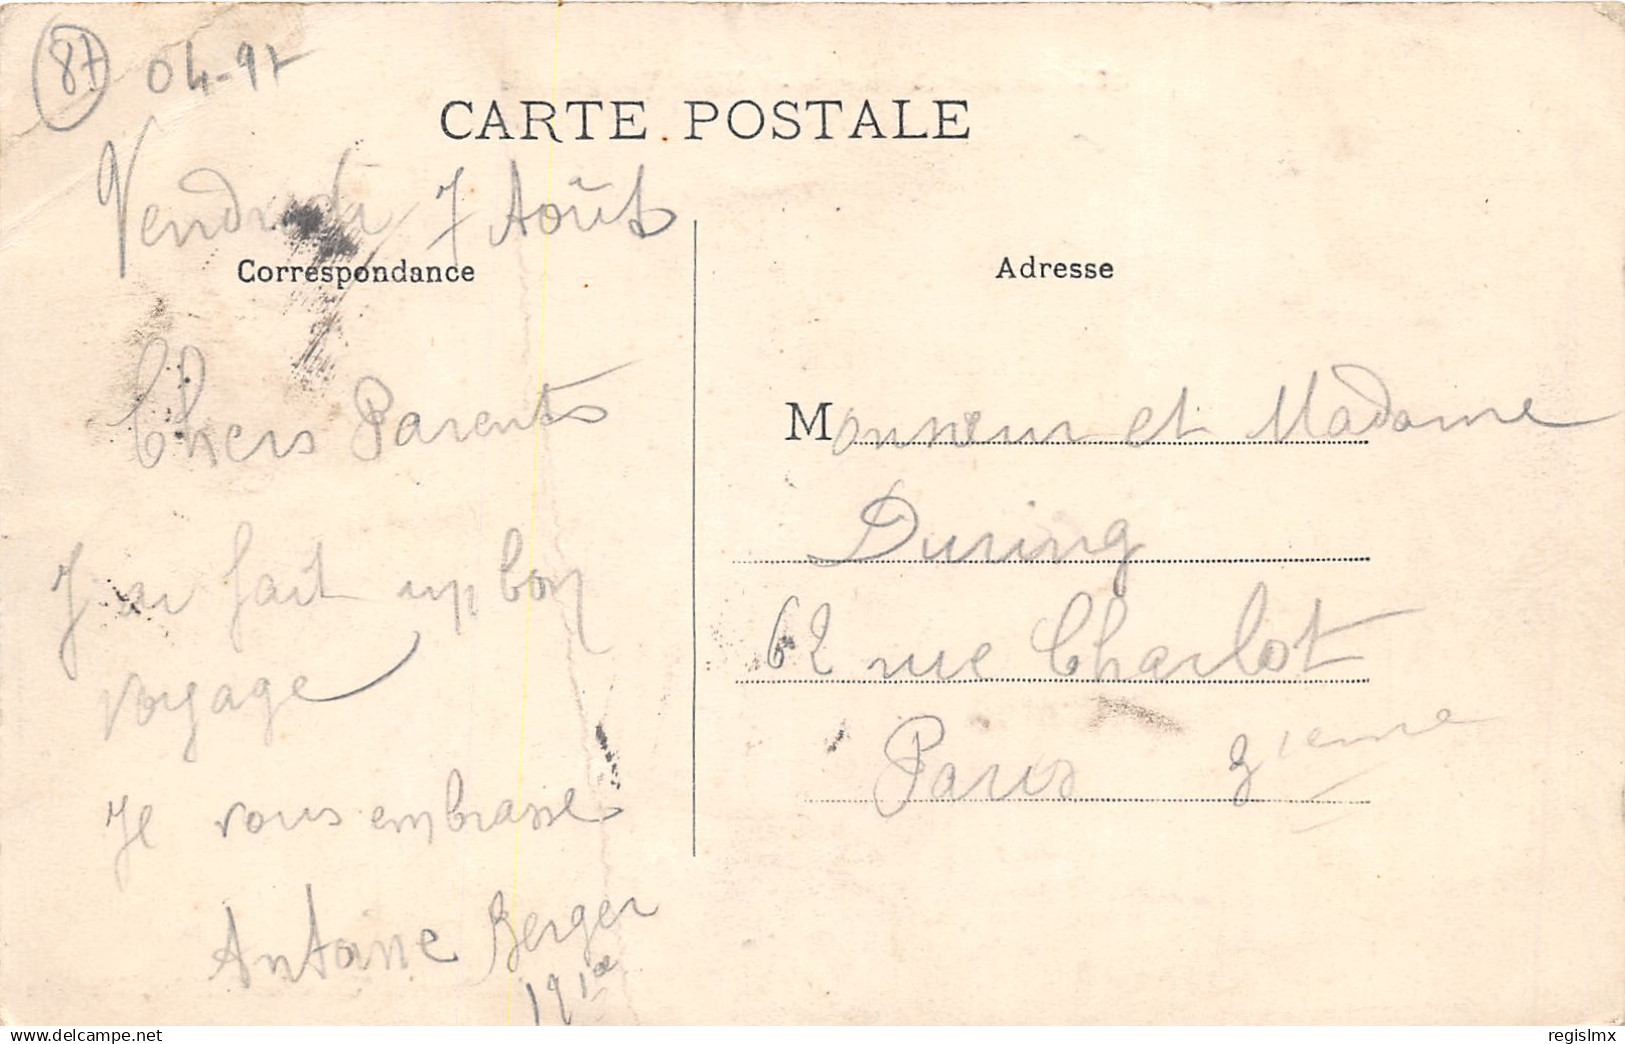 87 04-97
CARTE POSTALE
Vendredi 7 Août
Correspondance
Chers Parents
J'ai fait un bon
voyage
Je vous embrasse
Antoine Berger
Adresse
Monsieur et Madame
During
62 rue Charlot
Paris 3ieme
www.delcampe.net
regislmx